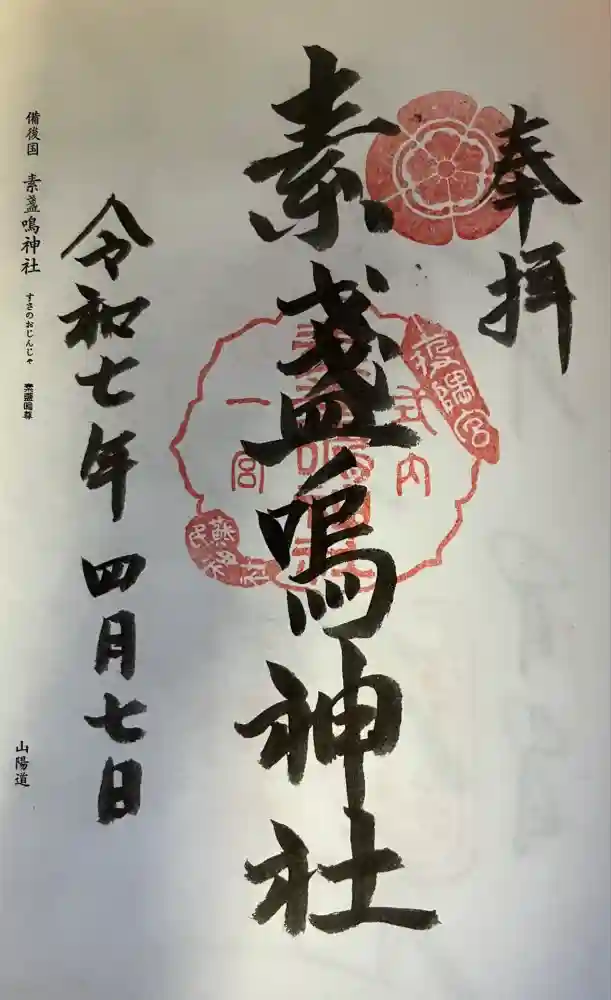 奉拝
素盞嗚神社
式内
一宮
疫隅宮
蘇民神社
令和七年四月七日
備後国 素盞嗚神社 すさのおじんじゃ 素盞嗚尊
山陽道